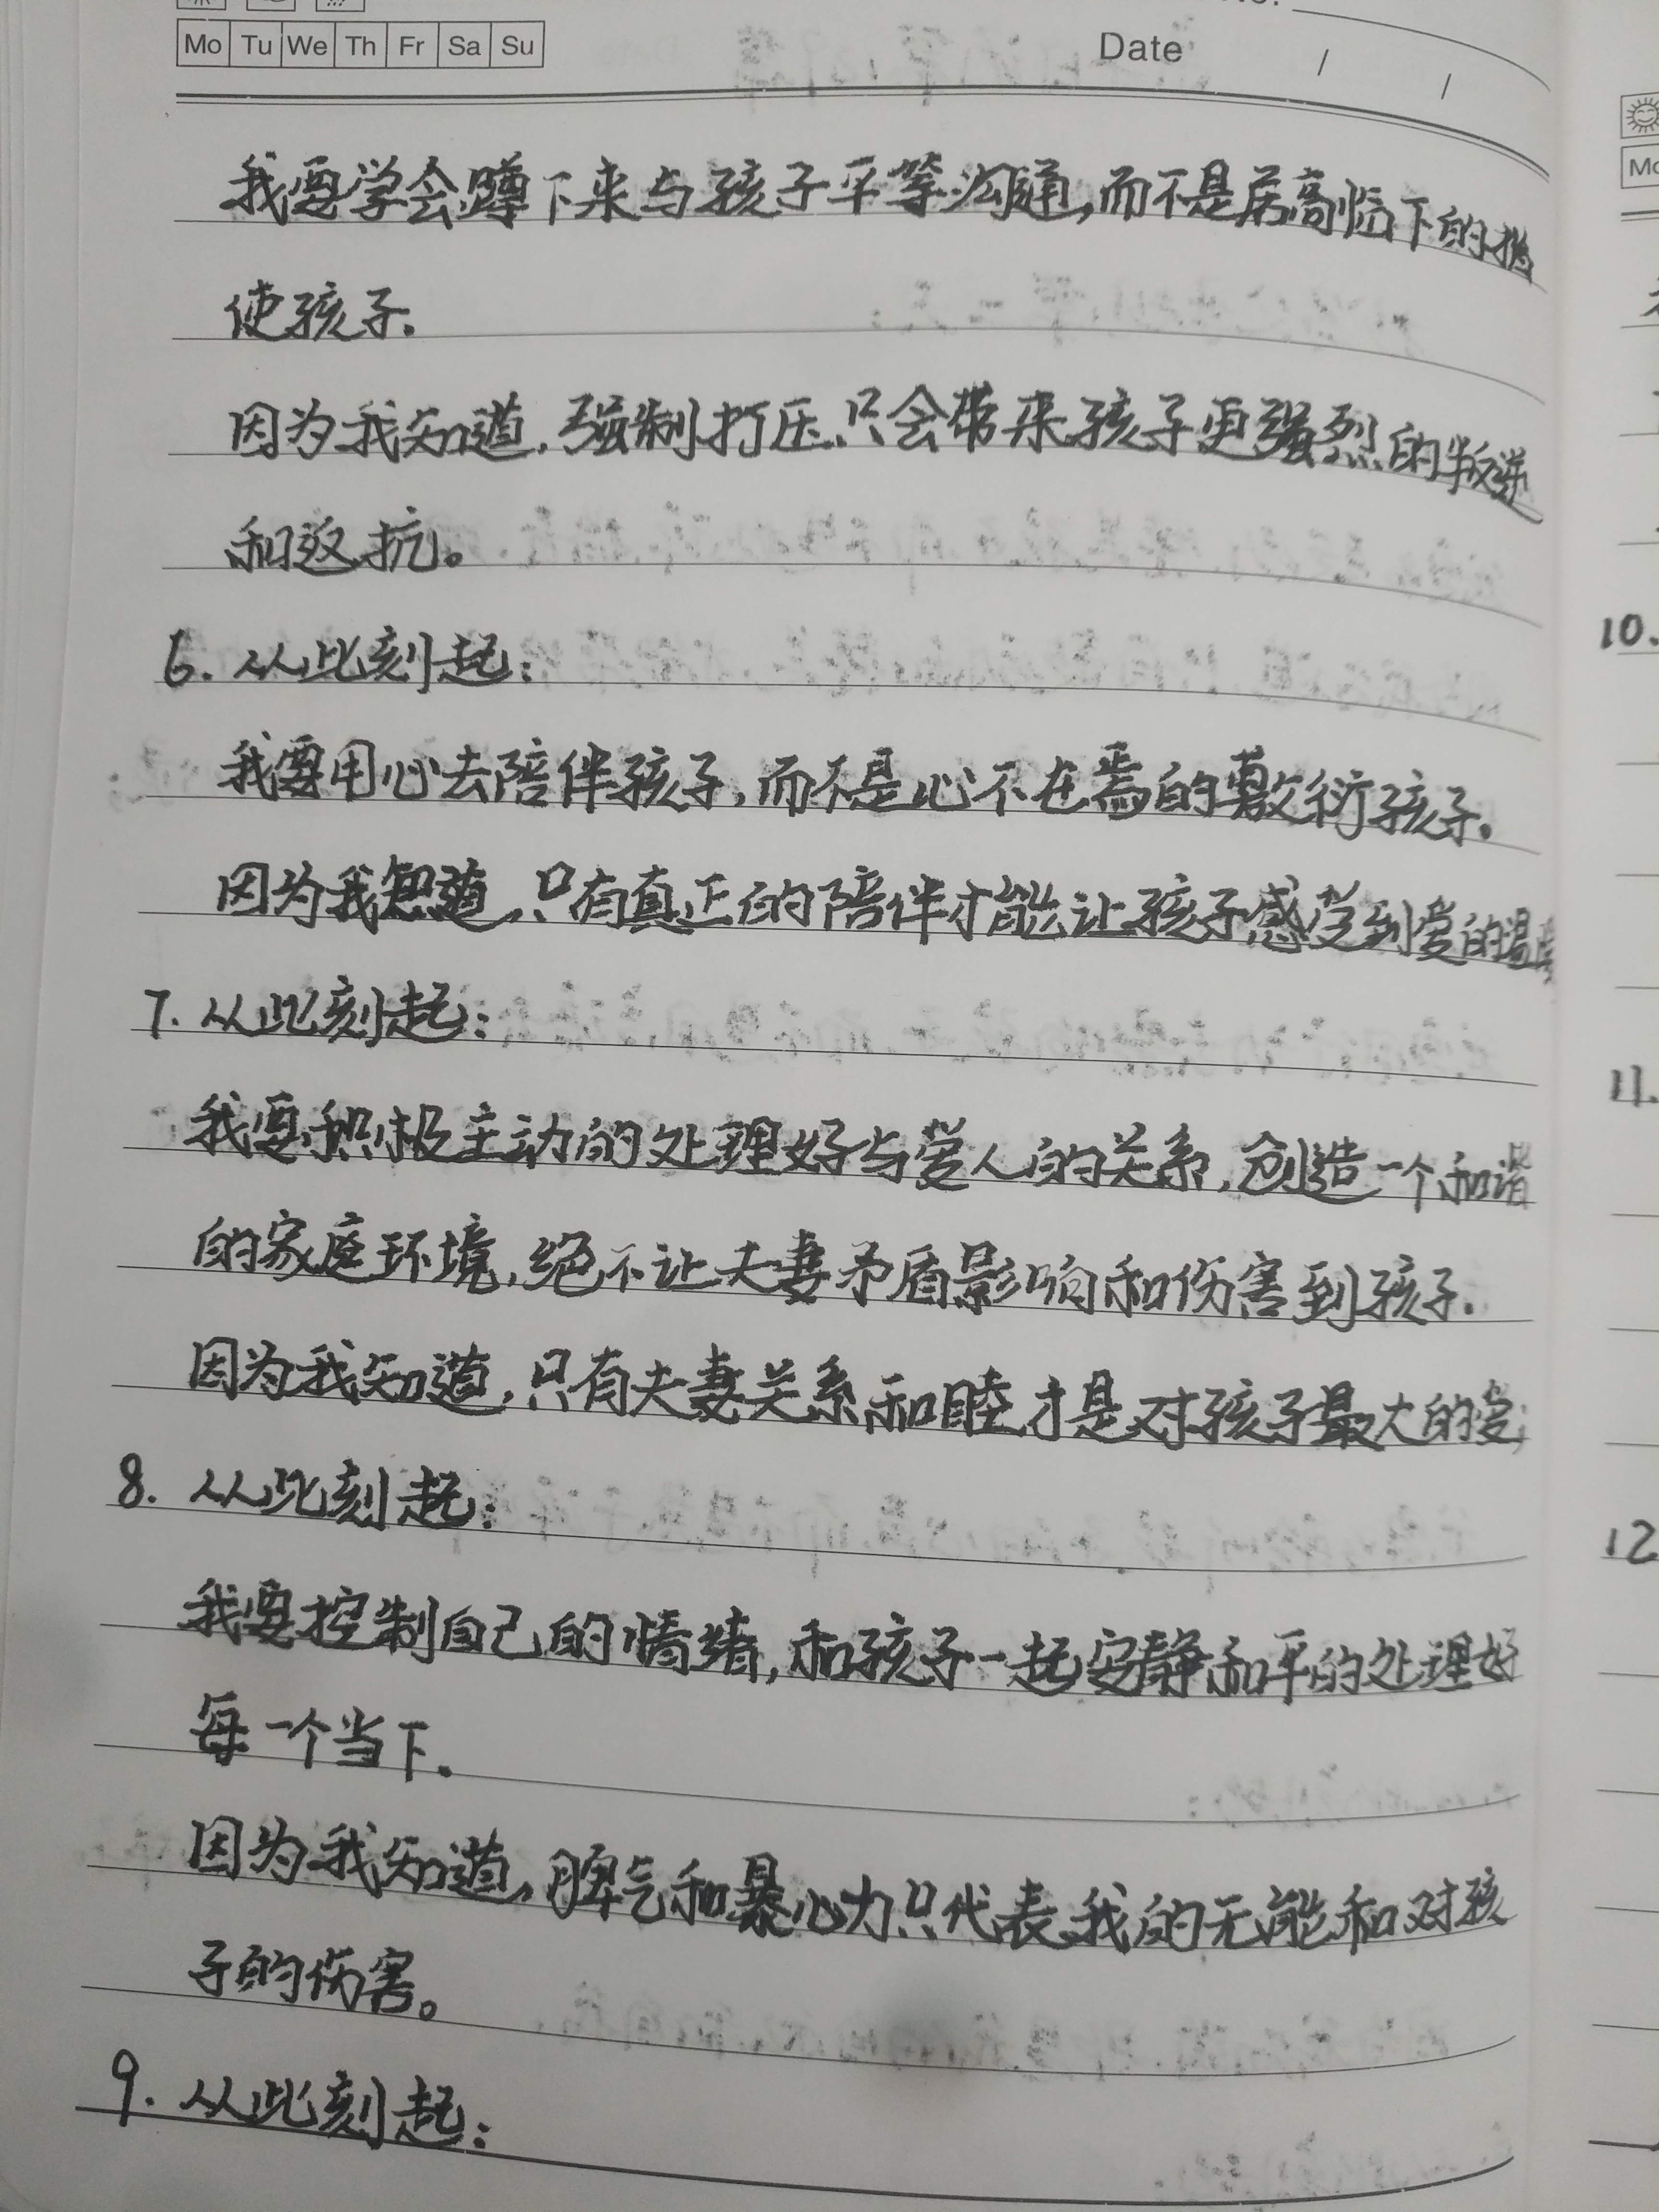 No.
Mo Tu We Th Fr Sa Su
Date / /
我要学会蹲下来与孩子平等沟通,而不是居高临下的指
使孩子.
因为我知道,强制打压只会带来孩子更强烈的叛逆
和返抗。
6. 从此刻起:
我要用心去陪伴孩子,而不是心不在焉的敷衍孩子.
因为我知道,只有真正的陪伴才能让孩子感受到爱的温度
7. 从此刻起:
我要积极主动的处理好与爱人的关系,创造一个和谐
的家庭环境,绝不让夫妻矛盾影响和伤害到孩子.
因为我知道,只有夫妻关系和睦才是对孩子最大的爱;
8. 从此刻起:
我要控制自己的情绪,和孩子一起安静和平的处理好
每一个当下.
因为我知道,脾气和暴心力只代表我的无能和对孩
子的伤害。
9. 从此刻起:
Mo
10.
11.
12